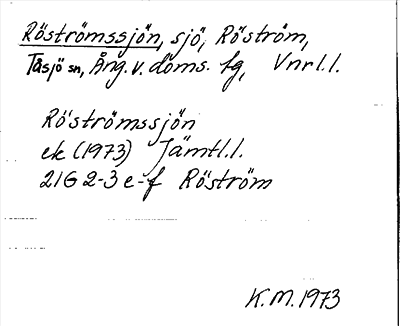 Röströmssjön, sjö, Röström,
Tåsjö sn, Ång. v. doms. fg, Vnrl.l.
Röströmssjön
ek (1973) Jämtl.l.
21G 2-3 e-f Röström
K.M. 1973